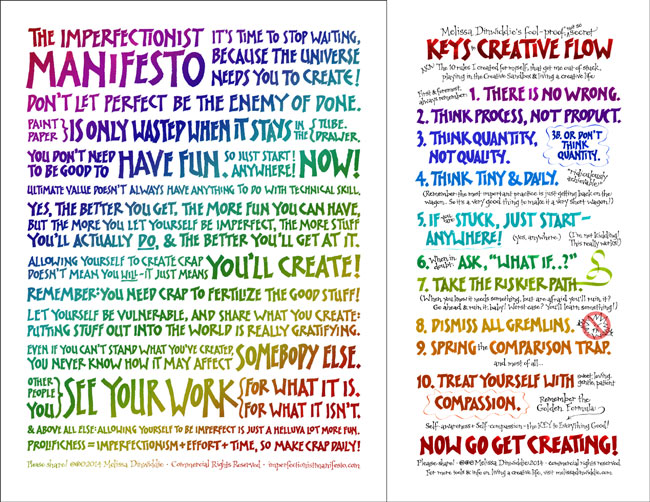 THE IMPERFECTIONIST
MANIFESTO
IT'S TIME TO STOP WAITING,
BECAUSE THE UNIVERSE
NEEDS YOU TO CREATE!
DON'T LET PERFECT BE THE ENEMY OF DONE.
PAINT
PAPER } IS ONLY WASTED WHEN IT STAYS IN THE { TUBE.
DRAWER.
YOU DON'T NEED
TO BE GOOD TO HAVE FUN. SO JUST START!
ANYWHERE! NOW!
ULTIMATE VALUE DOESN'T ALWAYS HAVE ANYTHING TO DO WITH TECHNICAL SKILL.
YES, THE BETTER YOU GET, THE MORE FUN YOU CAN HAVE,
BUT THE MORE YOU LET YOURSELF BE IMPERFECT, THE MORE STUFF
YOU'LL ACTUALLY DO, & THE BETTER YOU'LL GET AT IT.
ALLOWING YOURSELF TO CREATE CRAP
DOESN'T MEAN YOU WILL-IT JUST MEANS YOU'LL CREATE!
REMEMBER: YOU NEED CRAP TO FERTILIZE THE GOOD STUFF!
LET YOURSELF BE VULNERABLE, AND SHARE WHAT YOU CREATE:
PUTTING STUFF OUT INTO THE WORLD IS REALLY GRATIFYING.
EVEN IF YOU CAN'T STAND WHAT YOU'VE CREATED,
YOU NEVER KNOW HOW IT MAY AFFECT SOMEBODY ELSE.
OTHER
PEOPLE
YOU } SEE YOUR WORK { FOR WHAT IT IS.
FOR WHAT IT ISN'T.
& ABOVE ALL ELSE: ALLOWING YOURSELF TO BE IMPERFECT IS JUST A HELLUVA LOT MORE FUN.
PROLIFICNESS = IMPERFECTIONISM + EFFORT + TIME, SO MAKE CRAP DAILY!
Please share! ©2014 Melissa Dinwiddie · Commercial Rights Reserved · imperfectionistmanifesto.com
Melissa Dinwiddie's fool-proof, not so secret
KEYS to CREATIVE FLOW
The 10 rules I created for myself, that get me out of stuck,
playing in the Creative Sandbox & living a creative life
First & foremost,
always remember: 1. THERE IS NO WRONG.
2. THINK PROCESS, NOT PRODUCT.
3. THINK QUANTITY,
NOT QUALITY.
3B. OR DON'T
THINK
QUANTITY.
4. THINK TINY & DAILY. "Ridiculously
achievable"
(Remember the most important practice is just getting back on the
wagon... So it's a very good thing to make it a very short wagon!)
5. IF you are STUCK, JUST START–
ANYWHERE! (yes, anywhere.) (I'm not kidding!
This really works!)
6. When in
doubt: ASK, "WHAT IF..?"
7. TAKE THE RISKIER PATH.
(When you know it needs something, but are afraid you'll ruin it?
Go ahead & ruin it, baby! Worst case? You'll learn something!)
8. DISMISS ALL GREMLINS.
9. SPRING the COMPARISON TRAP.
and most of all...
10. TREAT YOURSELF WITH sweet, loving,
gentle, patient
COMPASSION. Remember the
Golden Formula:
Self-awareness + Self-compassion = the KEY to Everything Good!
NOW GO GET CREATING!
Please share · Melissa Dinwiddie 2014 · commercial rights reserved.
For more tools & info on living a creative life, visit melissadinwiddie.com.